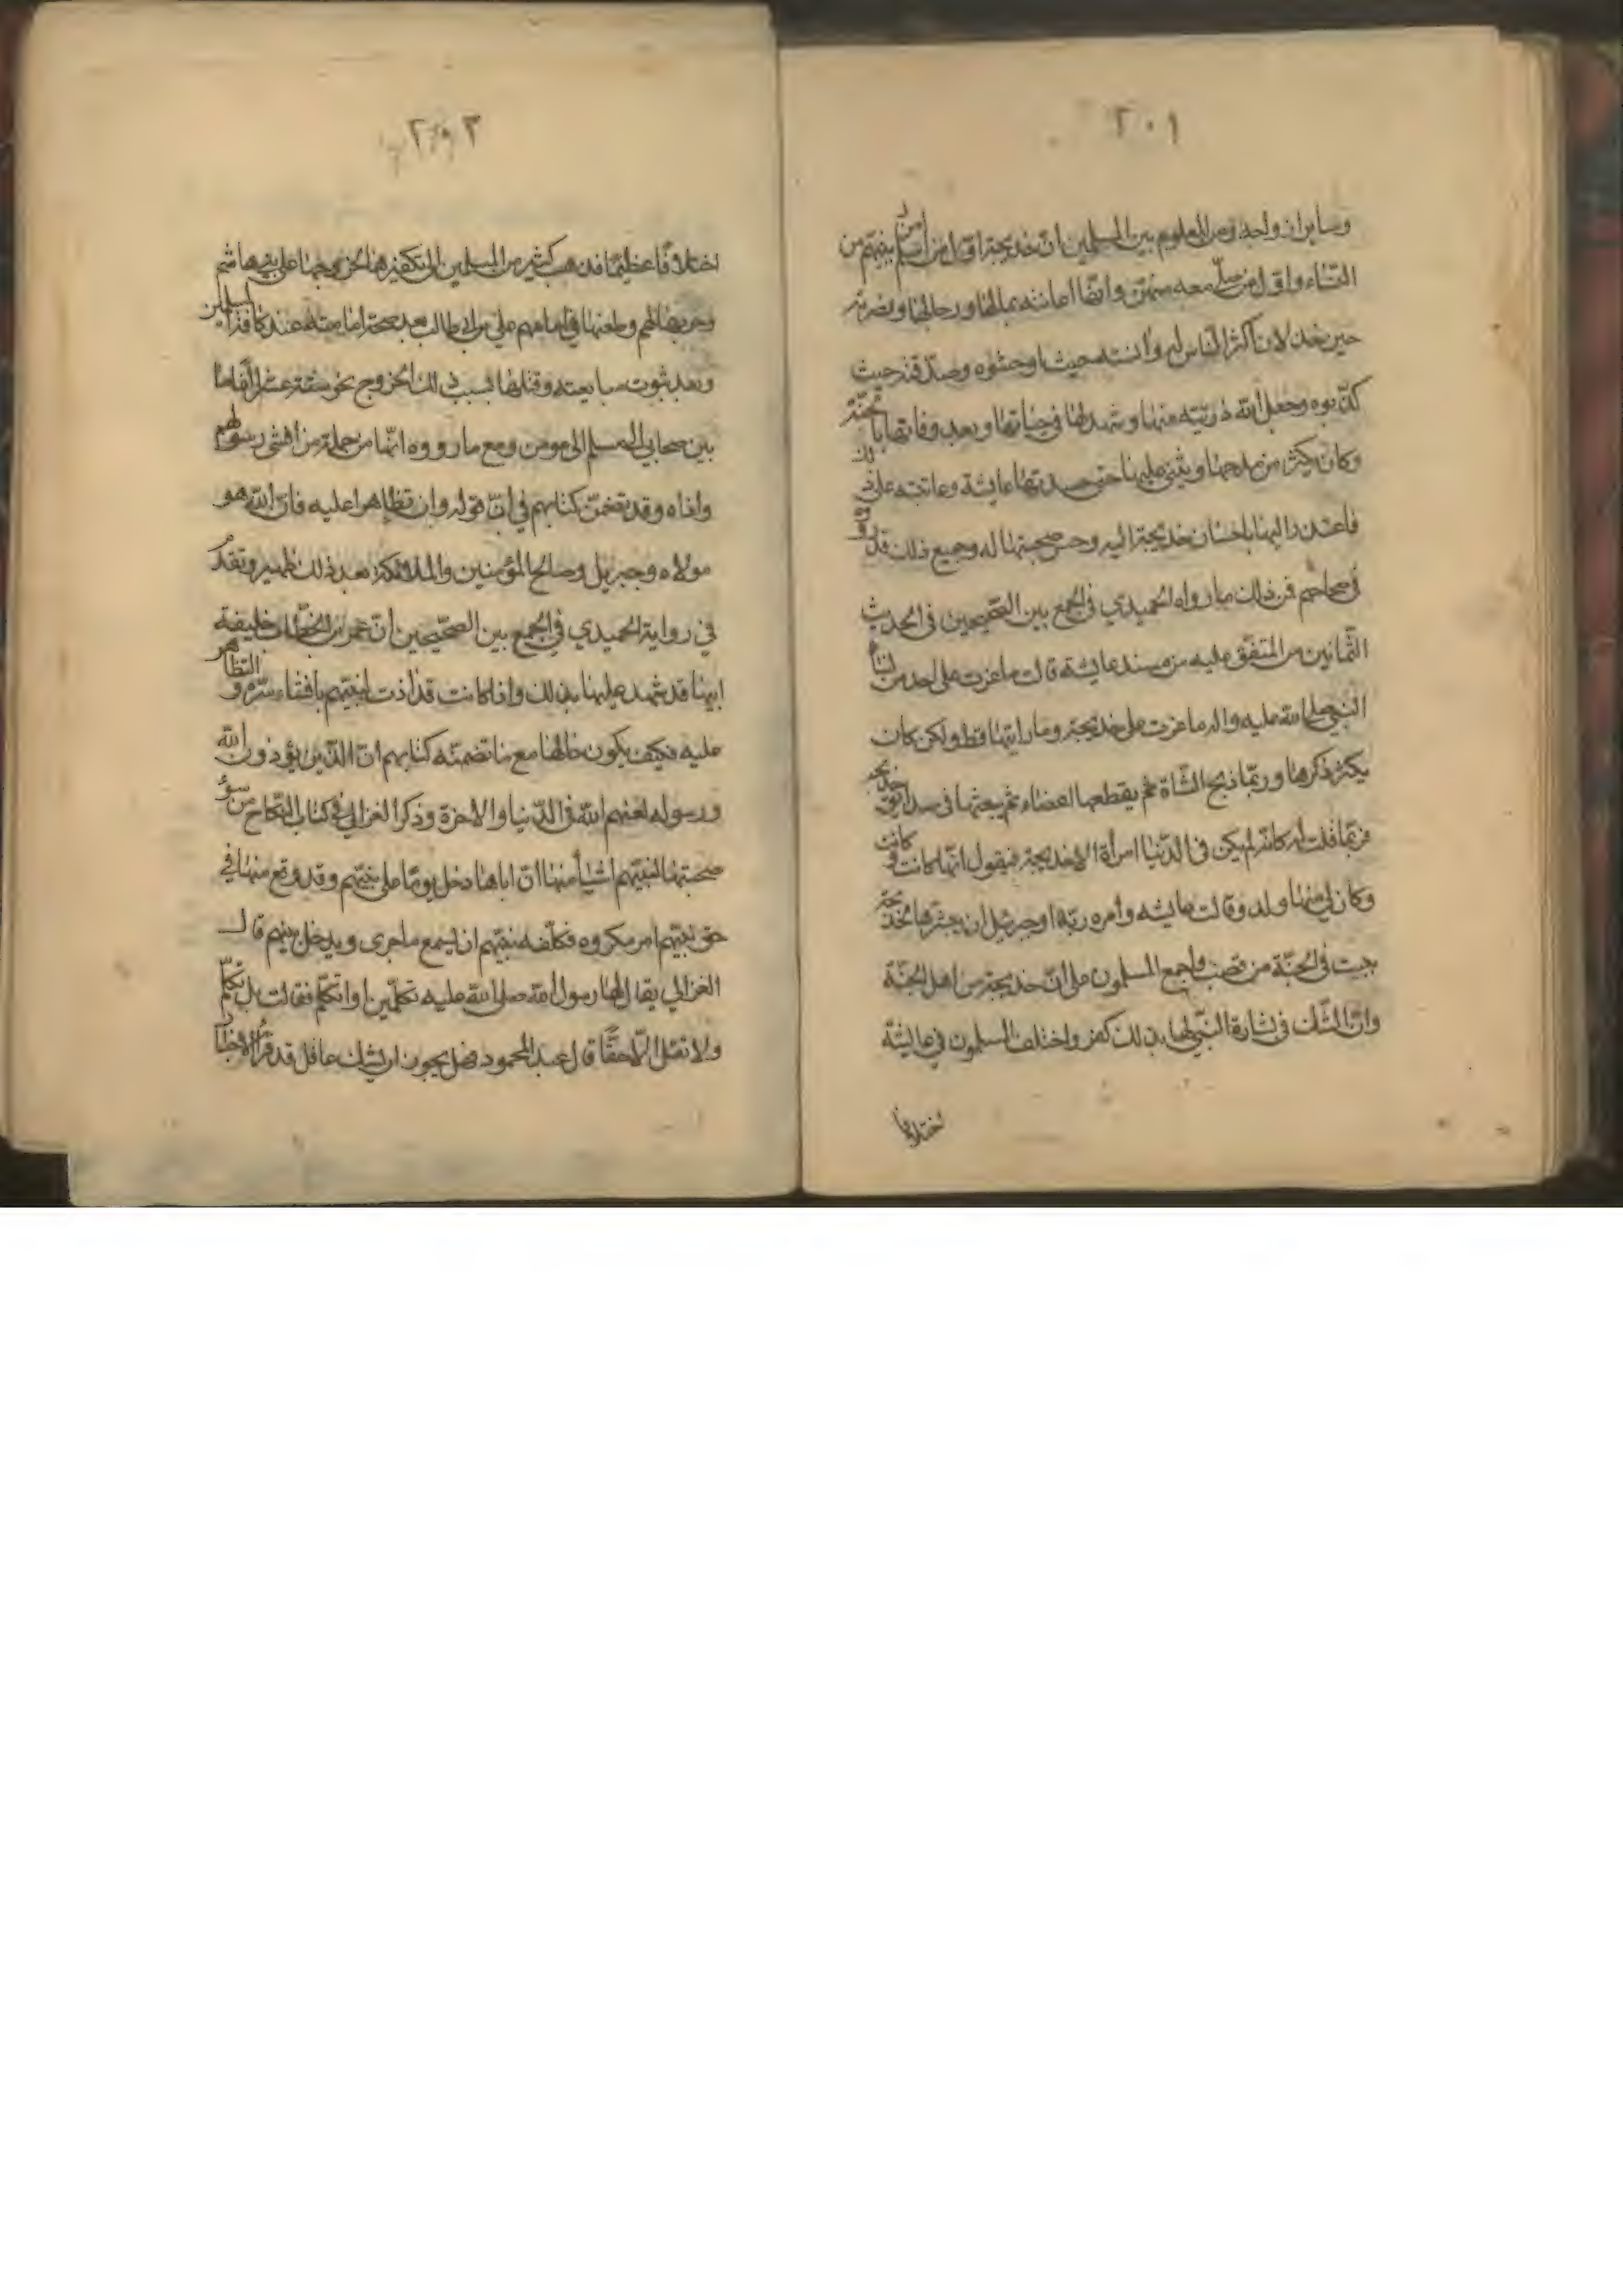 ٢٠١
وساير ازواجه ومن المعلوم بين المسلمين ان خديجة اول من اسلم من بنيتهم من
النساء واول من صلى معه منهن وانها اعانته بمالها ورجالها ونصرته
حين خذلان اكثر الناس له وآنسته حيث اوحشوه وصدقته حيث
كذبوه وجعل الله ذريته منها وشهد لها في حياتها وبعد وفاتها بالجنة
وكان يكثر من مدحها ويثني عليها حتى حسدتها عايشة وعاتبته على ذلك
فاعتذر اليها باحسان خديجة اليه وحسن صحبتها له وجميع ذلك قد رووه
في صحاحهم فمن ذلك ما رواه الحميدي في الجمع بين الصحيحين في الحديث
الثمانين من المتفق عليه من مسند عايشة قالت ما غرت على احد من نساء
النبي صلى الله عليه واله ما غرت على خديجة وما رايتها قط ولكن كان
يكثر ذكرها وربما ذبح الشاة ثم يقطعها اعضاء ثم يبعثها في صدايق خديجة
فربما قلت له كانه لم يكن في الدنيا امرأة الا خديجة فيقول انها كانت وكانت
وكان لي منها ولد وقالت عايشه وأمره ربه او جبرئيل ان يبشرها
ببيت في الجنة من قصب واجمع المسلمون على ان خديجة من اهل الجنة
وان الشك في بشارة النبي لها بذلك كفر واختلف المسلمون في عايشة
اختلافا
٢٠٢
اختلافا عظيما فذهب كثير من المسلمين الى تكفيرها لخروجها على بني هاشم
وحربها لهم وطعنها في امامهم علي بن ابي طالب بعد صحة امامته عند كافة المسلمين
وبعد ثبوت مبايعته وقتلها بسبب ذلك الخروج نحو ستة عشر الفا ما
بين صحابي الى مسلم الى مومن ومع ما رووه انها من جملة من افشى رسولهم
واذاه وقد تضمن كتابهم في ان قوله وان تظاهرا عليه فان الله هو
مولاه وجبريل وصالح المؤمنين والملائكة بعد ذلك ظهير وتقدم
في رواية الحميدي في الجمع بين الصحيحين أن عمر بن الخطاب خليفة
ابيها قد شهد عليها بذلك واذا كانت قد اذت نبيهم بافشاء سره والتظاهر
عليه فكيف يكون حالها مع ما تضمنه كتابهم ان الذين يؤذون الله
ورسوله لعنهم الله في الدنيا والاخرة وذكر الغزالي في كتاب النكاح من سوء
صحبتها لنبيهم اشياء منها ان اباها دخل يوما على نبيهم وقد وقع منها في
حق نبيهم امر مكروه فكلفه نبيهم ان يسمع ما جرى ويدخل بينهم قال
الغزالي يقال لها رسول الله صلى الله عليه تكلمين او اتكلم فقالت بل تكلم
ولا تقل الا حقا قال عبد المحمود فهل يجوز ان يشك عاقل قد قرأ الاخبار